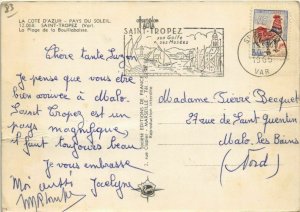 LA COTE D'AZUR - PAYS DU SOLEIL
12.068. SAINT-TROPEZ (Var).
La Plage de la Bouillabaisse.
SAINT-TROPEZ
son Golfe
ses Musées
VAR
Chère tante Suzon
Je pense que vous êtes
bien arrivée à Malo.
Saint Tropez est un
pays magnifique,
il fait toujours beau
Je vous embrasse
Moi aussi Jocelyne
Madame Pierre Becquet
rue de Saint Quentin
Malo les Bains
(Nord)